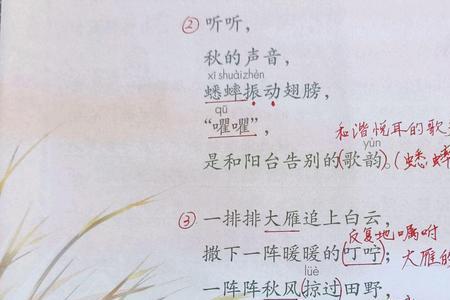 ② 听听，
秋的声音，
xī shuài zhèn
蟋蟀振动翅膀，
qú
“㘗㘗”，
和谐悦耳的歌
yùn
是和阳台告别的(歌韵)。(蟋蟀
③ 一排排大雁追上白云，
反复地嘱咐
撒下一阵暖暖的(叮咛)；大雁的
lüè
一阵阵秋风(掠过)田野，